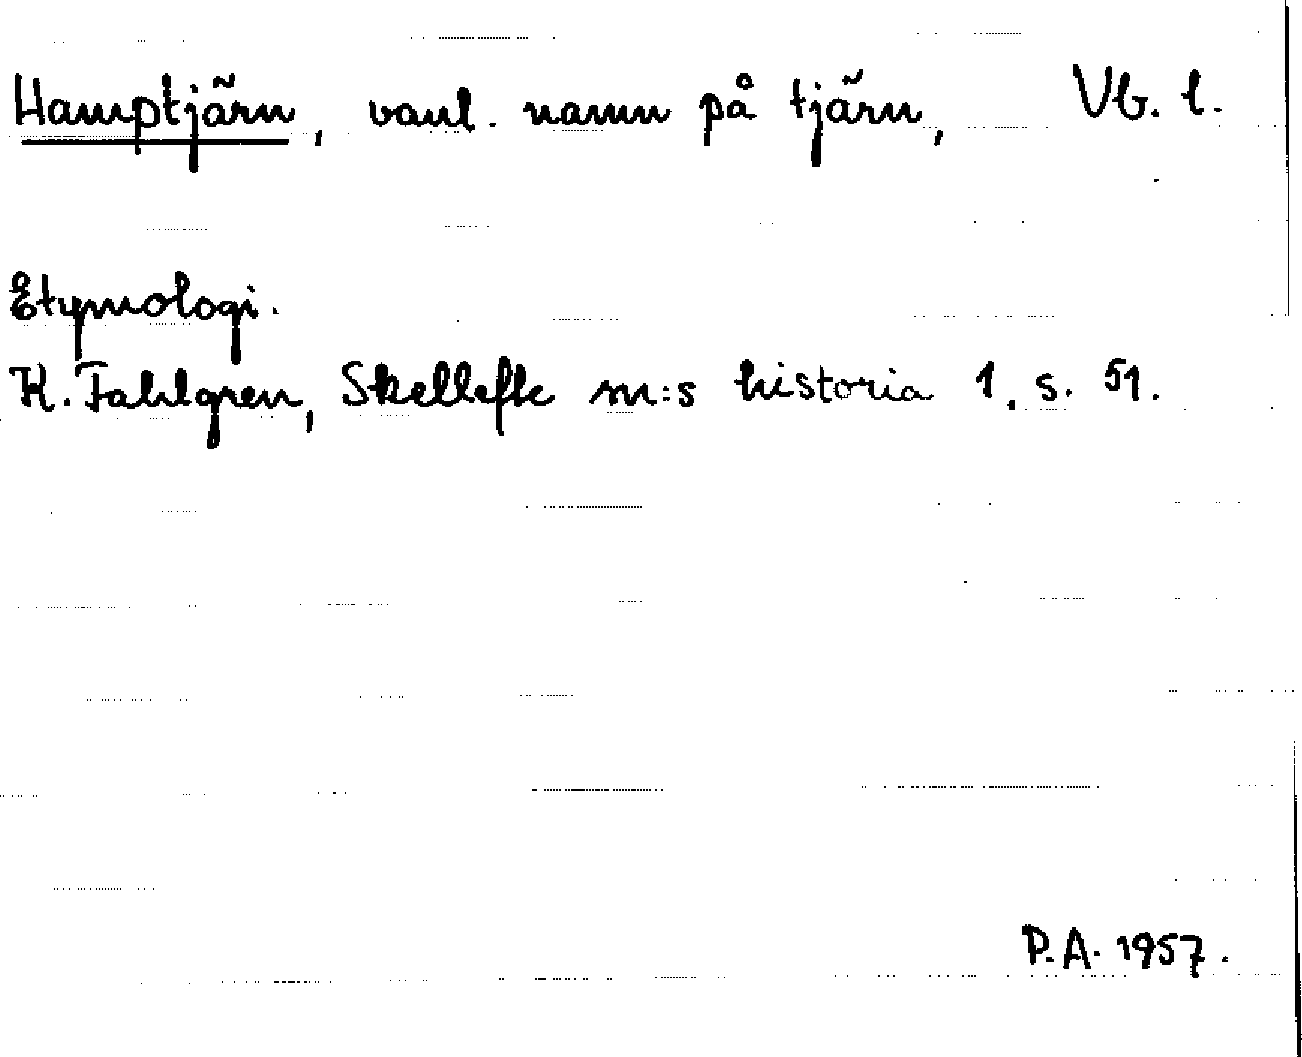 Hamptjärn, vanl. namn på tjärn, Vb. l.
Etymologi.
K. Fahlgren, Skellefte m:s historia 1, s. 51.
P.A. 1957.